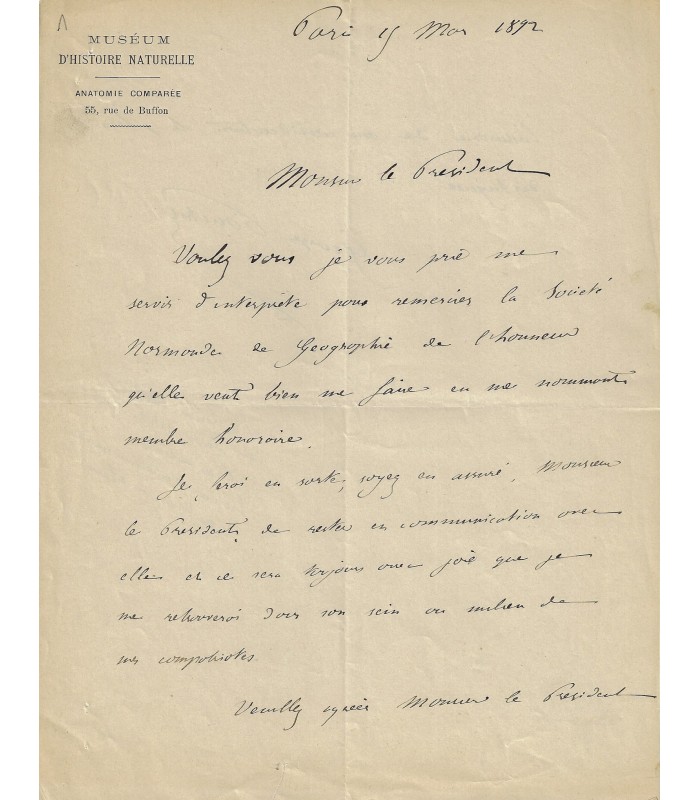 MUSÉUM
D'HISTOIRE NATURELLE
ANATOMIE COMPARÉE
55, rue de Buffon
Paris 15 Mars 1892
Monsieur le Président
Voulez vous je vous prie me
servir d'interprète pour remercier la Société
Normande de Géographie de l'honneur
qu'elle veut bien me faire en me nommant
membre honoraire.
Je ferai en sorte, soyez en assuré, Monsieur
le Président, de rester en communication avec
elle et ce sera toujours avec joie que je
me retrouverai dans son sein au milieu de
mes compatriotes.
Veuillez agréer Monsieur le Président